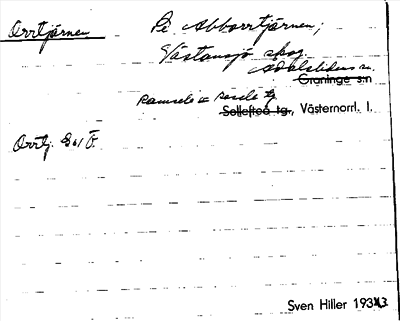 Orrtjärnen
Pe Abborrtjärnen;
Västansjö skog.
Ådalslidens sn.
Graninge s:n
Ramsele o Resele tg
Sollefteå tg., Västernorrl. l.
Orrtj. G61
Sven Hiller 1943